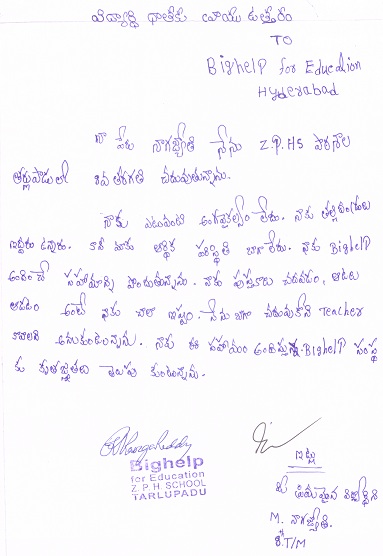 విద్యార్థి దాతకు వ్రాయు ఉత్తరం
TO
Bighelp for Education
Hyderabad
నా పేరు నాగజ్యోతి నేను Z.P.HS పాఠశాల
తర్లుపాడులో 8వ తరగతి చదువుతున్నాను.
నాకు ఎటువంటి అంగవైకల్యం లేదు. నాకు తల్లిదండ్రులు
ఇద్దరు ఉన్నారు. కానీ మాకు ఆర్థిక పరిస్థితి బాగాలేదు. నాకు BigHelp
అందించే సహాయాన్ని పొందుతున్నాను. నాకు పుస్తకాలు చదవడం, ఆటలు
ఆడటం అంటే నాకు చాలా ఇష్టం. నేను బాగా చదువుకొని Teacher
కావాలని అనుకుంటున్నాను. నాకు ఈ సహాయం అందిస్తున్న Bighelp సంస్థ
కు కృతజ్ఞతలు తెలుపు కుంటున్నాను.
Bighelp
for Education
Z. P. H. SCHOOL
TARLUPADU
ఇట్లు
మీ ప్రియమైన విద్యార్థిని
M. నాగజ్యోతి.
8th T/M